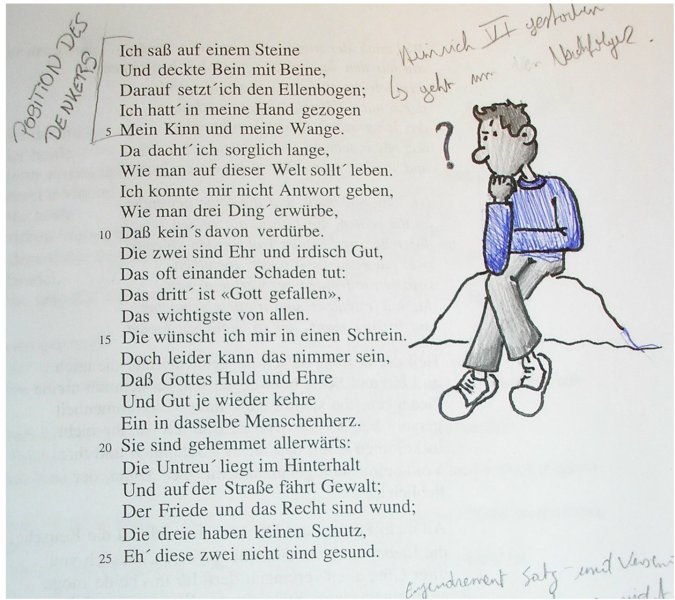 POSITION DES
DENKERS
Heinrich VI gestorben
↳ geht um den Nachfolger.
?
Ich saß auf einem Steine
Und deckte Bein mit Beine,
Darauf setzt´ich den Ellenbogen;
Ich hatt´in meine Hand gezogen
5 Mein Kinn und meine Wange.
Da dacht´ich sorglich lange,
Wie man auf dieser Welt sollt´leben.
Ich konnte mir nicht Antwort geben,
Wie man drei Ding´erwürbe,
10 Daß kein´s davon verdürbe.
Die zwei sind Ehr und irdisch Gut,
Das oft einander Schaden tut:
Das dritt´ist «Gott gefallen»,
Das wichtigste von allen.
15 Die wünscht ich mir in einen Schrein.
Doch leider kann das nimmer sein,
Daß Gottes Huld und Ehre
Und Gut je wieder kehre
Ein in dasselbe Menschenherz.
20 Sie sind gehemmet allerwärts:
Die Untreu´liegt im Hinterhalt
Und auf der Straße fährt Gewalt;
Der Friede und das Recht sind wund;
Die dreie haben keinen Schutz,
25 Eh´diese zwei nicht sind gesund.
Enjendrement Satz- und
nicht